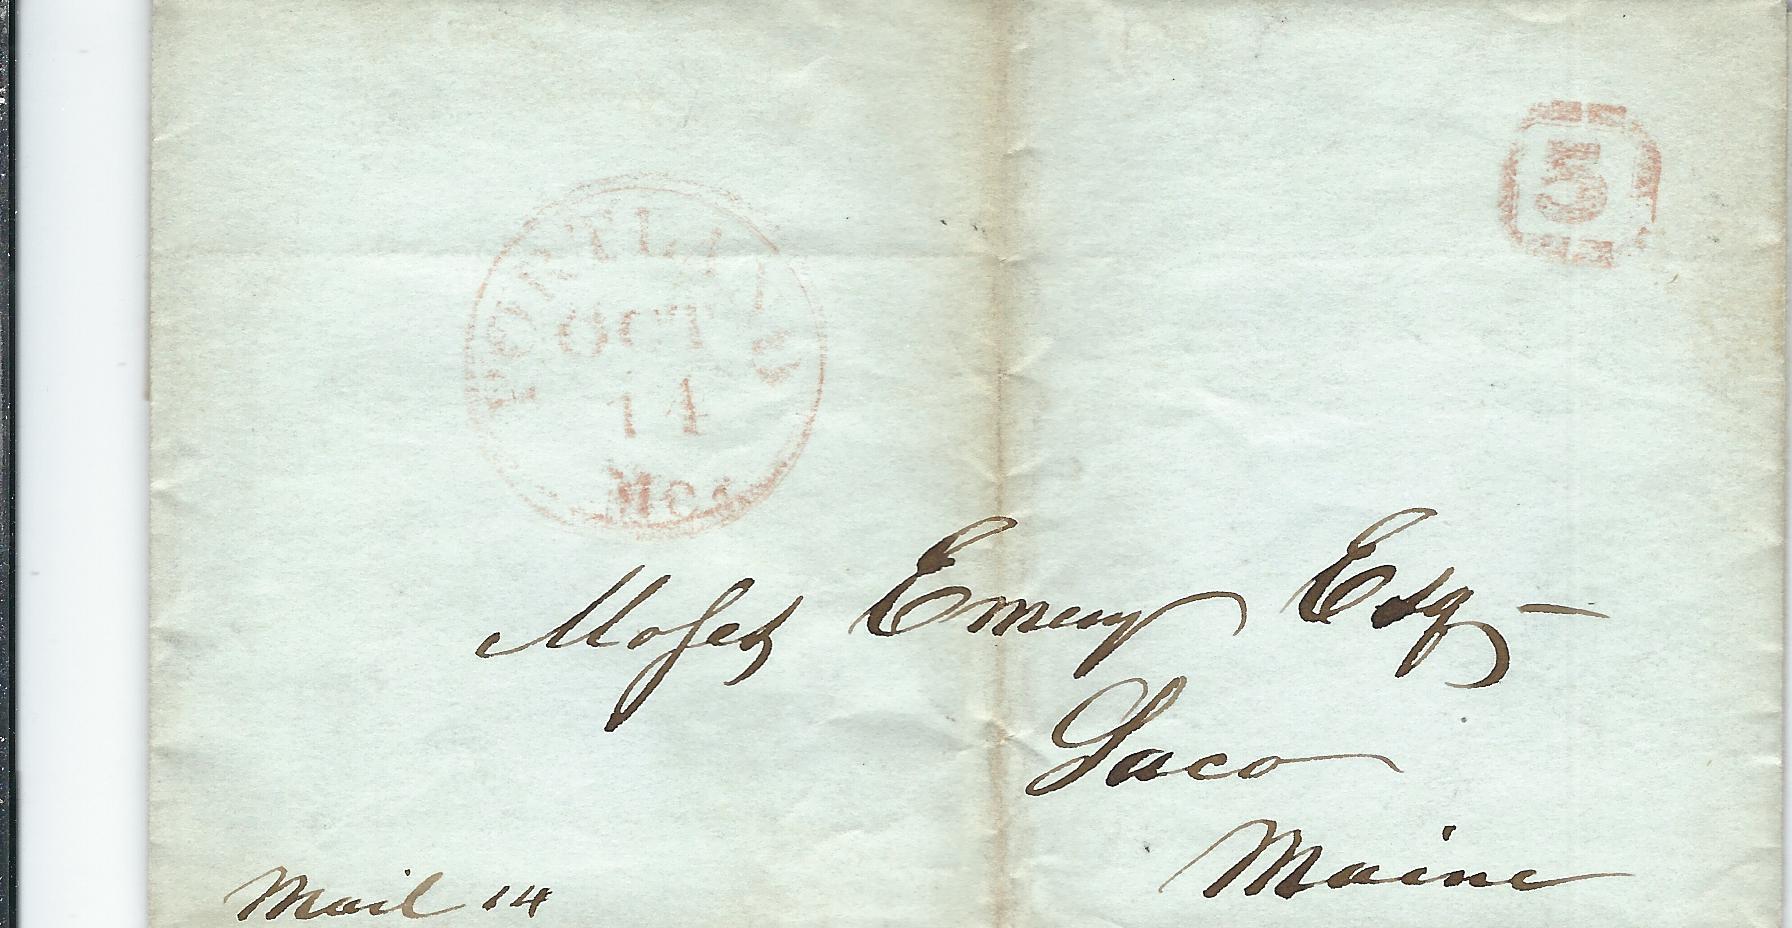 5
PORTLAND
OCT
14
Me.
Moses Emery Esq
Saco
Maine
Mail 14